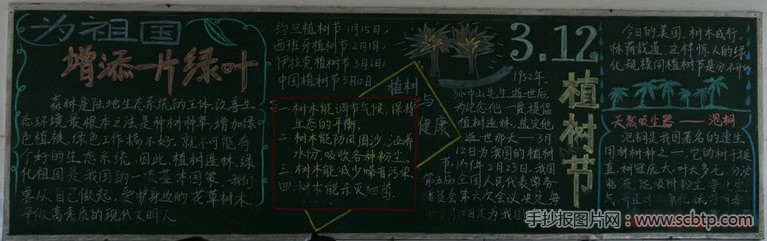 为祖国
增添一片绿叶
森林是陆地生态系统的主体,改善生
态环境最根本之法是种树种草,增加绿
色植被,绿色工作搞不好,就不可能有
个好的生态系统。因此,植树造林,绿
化祖国是我国的一项基本国策。我们
要从自己做起,爱护身边的花草树木
争做高素质的现代文明人
约旦植树节1月15日;
西班牙植树节2月1日;
伊拉克植树节3月6日;
中国植树节3月12日
植树
与
健康
一.树木能调节气候,保持
生态的平衡.
二.树木能防风固沙,涵养
水份,吸收各种粉尘
三.树木能减少噪音污染
四.树木能杀灭细菌.
3.12
植树节
孙中山先生逝世后,
为纪念他一贯提倡
植树造林,
逝世那天—3月
12日为我国的植树
节,1979年2月23日,我国
第五届全国人民代表常务
委员会第六次会议决定每
今日的美国,树木成行,
林荫载道,这样惊人的绿
化规模同植树节是分不开的
天然吸尘器——泡桐
泡桐是我国著名的速生
用材树种之一,它的树干挺
直,树冠庞大,叶大多毛,分泌
手抄报图片网:www.scbtp.com